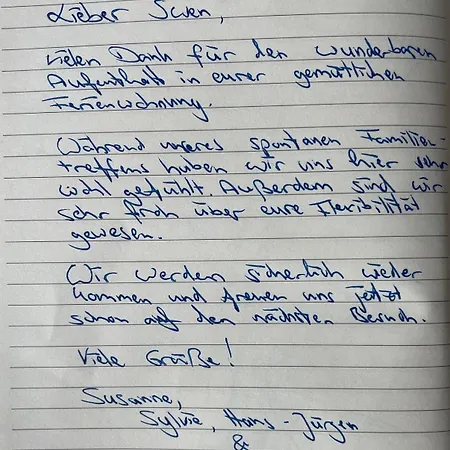 Lieber Sven,
vielen Dank für den wunderbaren
Aufenthalt in eurer gemütlichen
Ferienwohnung.
Während unseres spontanen Familien-
treffens haben wir uns hier sehr
wohl gefühlt. Außerdem sind wir
sehr froh über eure Flexibilität
gewesen.
Wir werden sicherlich wieder
kommen und freuen uns jetzt
schon auf den nächsten Besuch.
Viele Grüße!
Susanne,
Sylvie, Hans-Jürgen
&